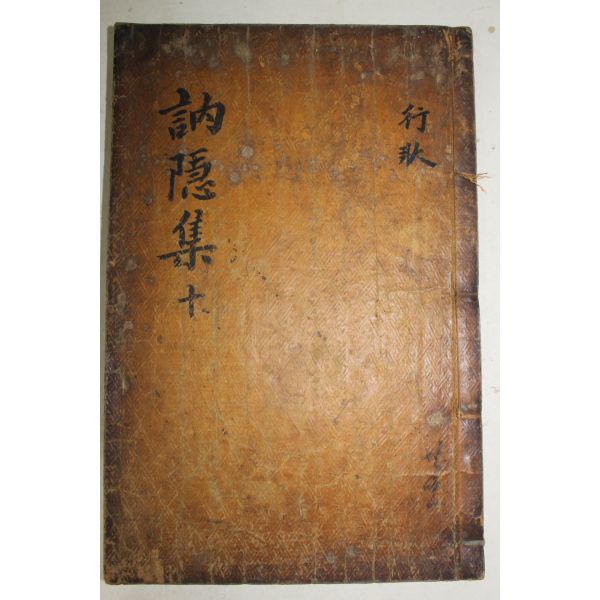 訥隱集 十
行狀